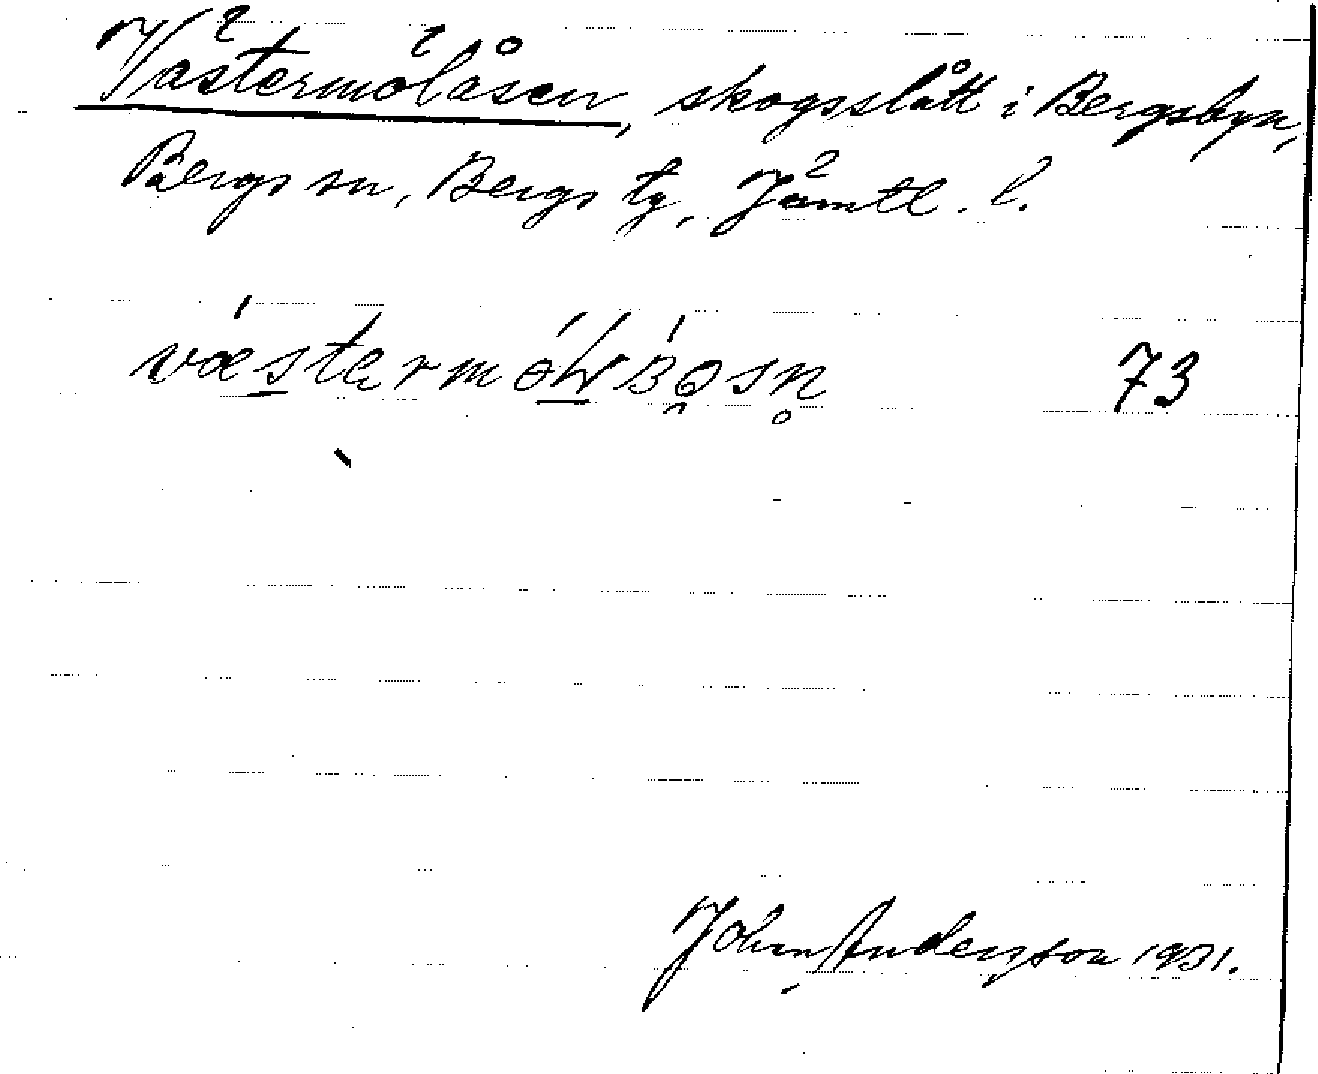 Västermölåsen, skogsslått i Bergsbyn,
Bergs sn, Bergs tg, Jämtl. l.
73
John Andersson 1931.